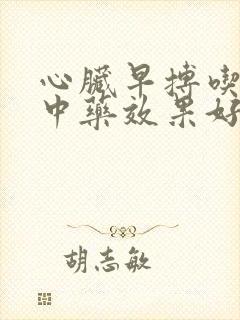 心臟早搏喫
中藥效果好
胡志敏